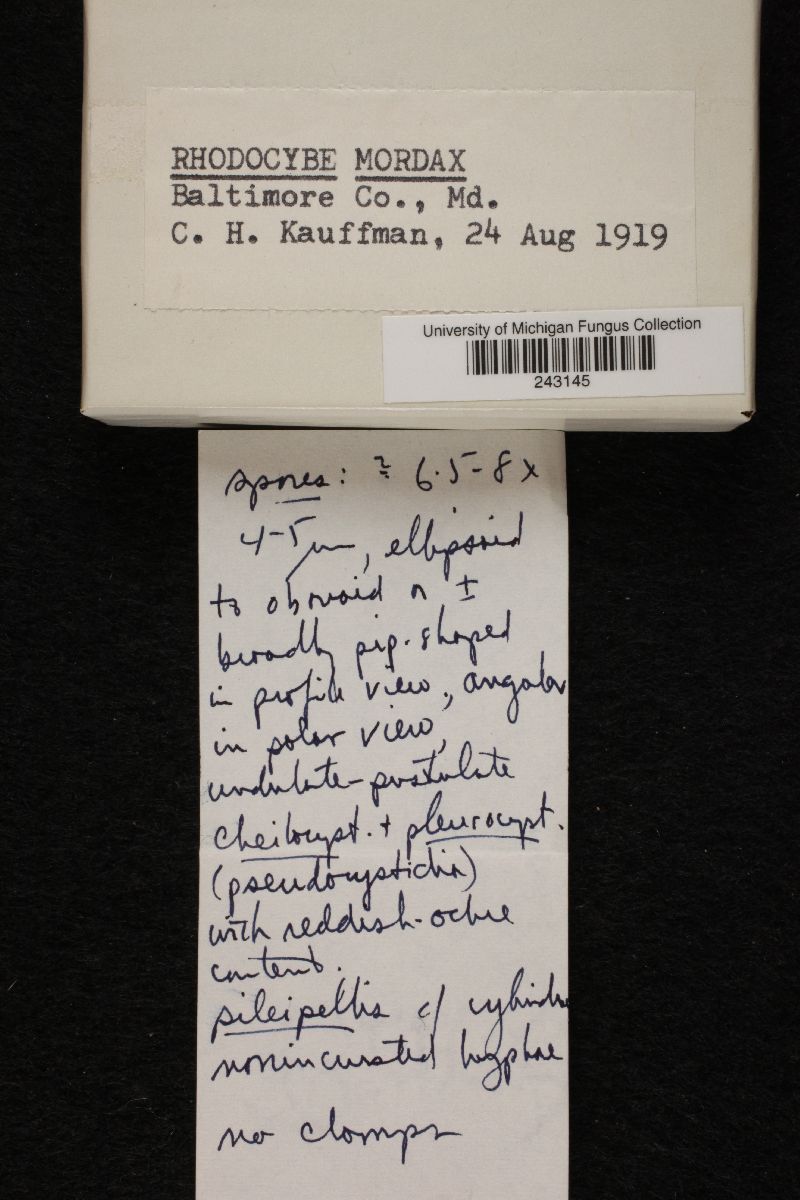 RHODOCYBE MORDAX
Baltimore Co., Md.
C. H. Kauffman, 24 Aug 1919
University of Michigan Fungus Collection
243145
spores: 6.5-8 x
4-5 µm, ellipsoid
to obovoid or ±
broadly pip-shaped
in profile view, angular
in polar view,
undulate-pustulate
cheilocyst. + pleurocyst.
(pseudocystidia)
with reddish-ochre
content.
pileipellis c/ cylindr
nonincrusted hyphae
no clamps